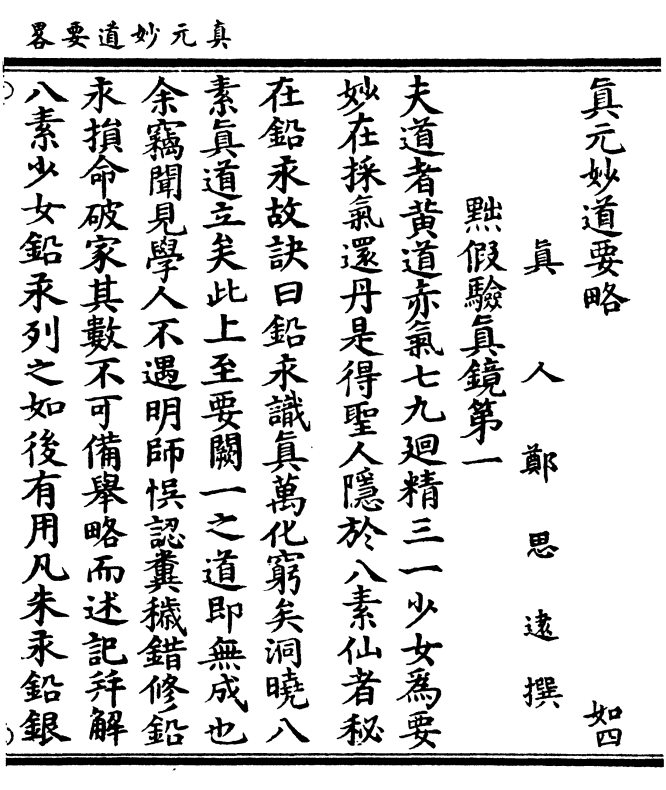 真元妙道要畧
真元妙道要略 如四
真人鄭思遠撰
黜假驗真鏡第一
夫道者黄道赤氣七九廻精三一少女爲要
妙在採氣還丹是得聖人隱於八素仙者秘
在鉛汞故訣曰鉛汞識真萬化窮矣洞曉八
素真道立矣此上至要闕一之道即無成也
余竊聞見學人不遇明師悮認糞穢錯修鉛
汞損命破家其數不可備舉略而述記并解
八素少女鉛汞列之如後有用凡朱汞鉛銀